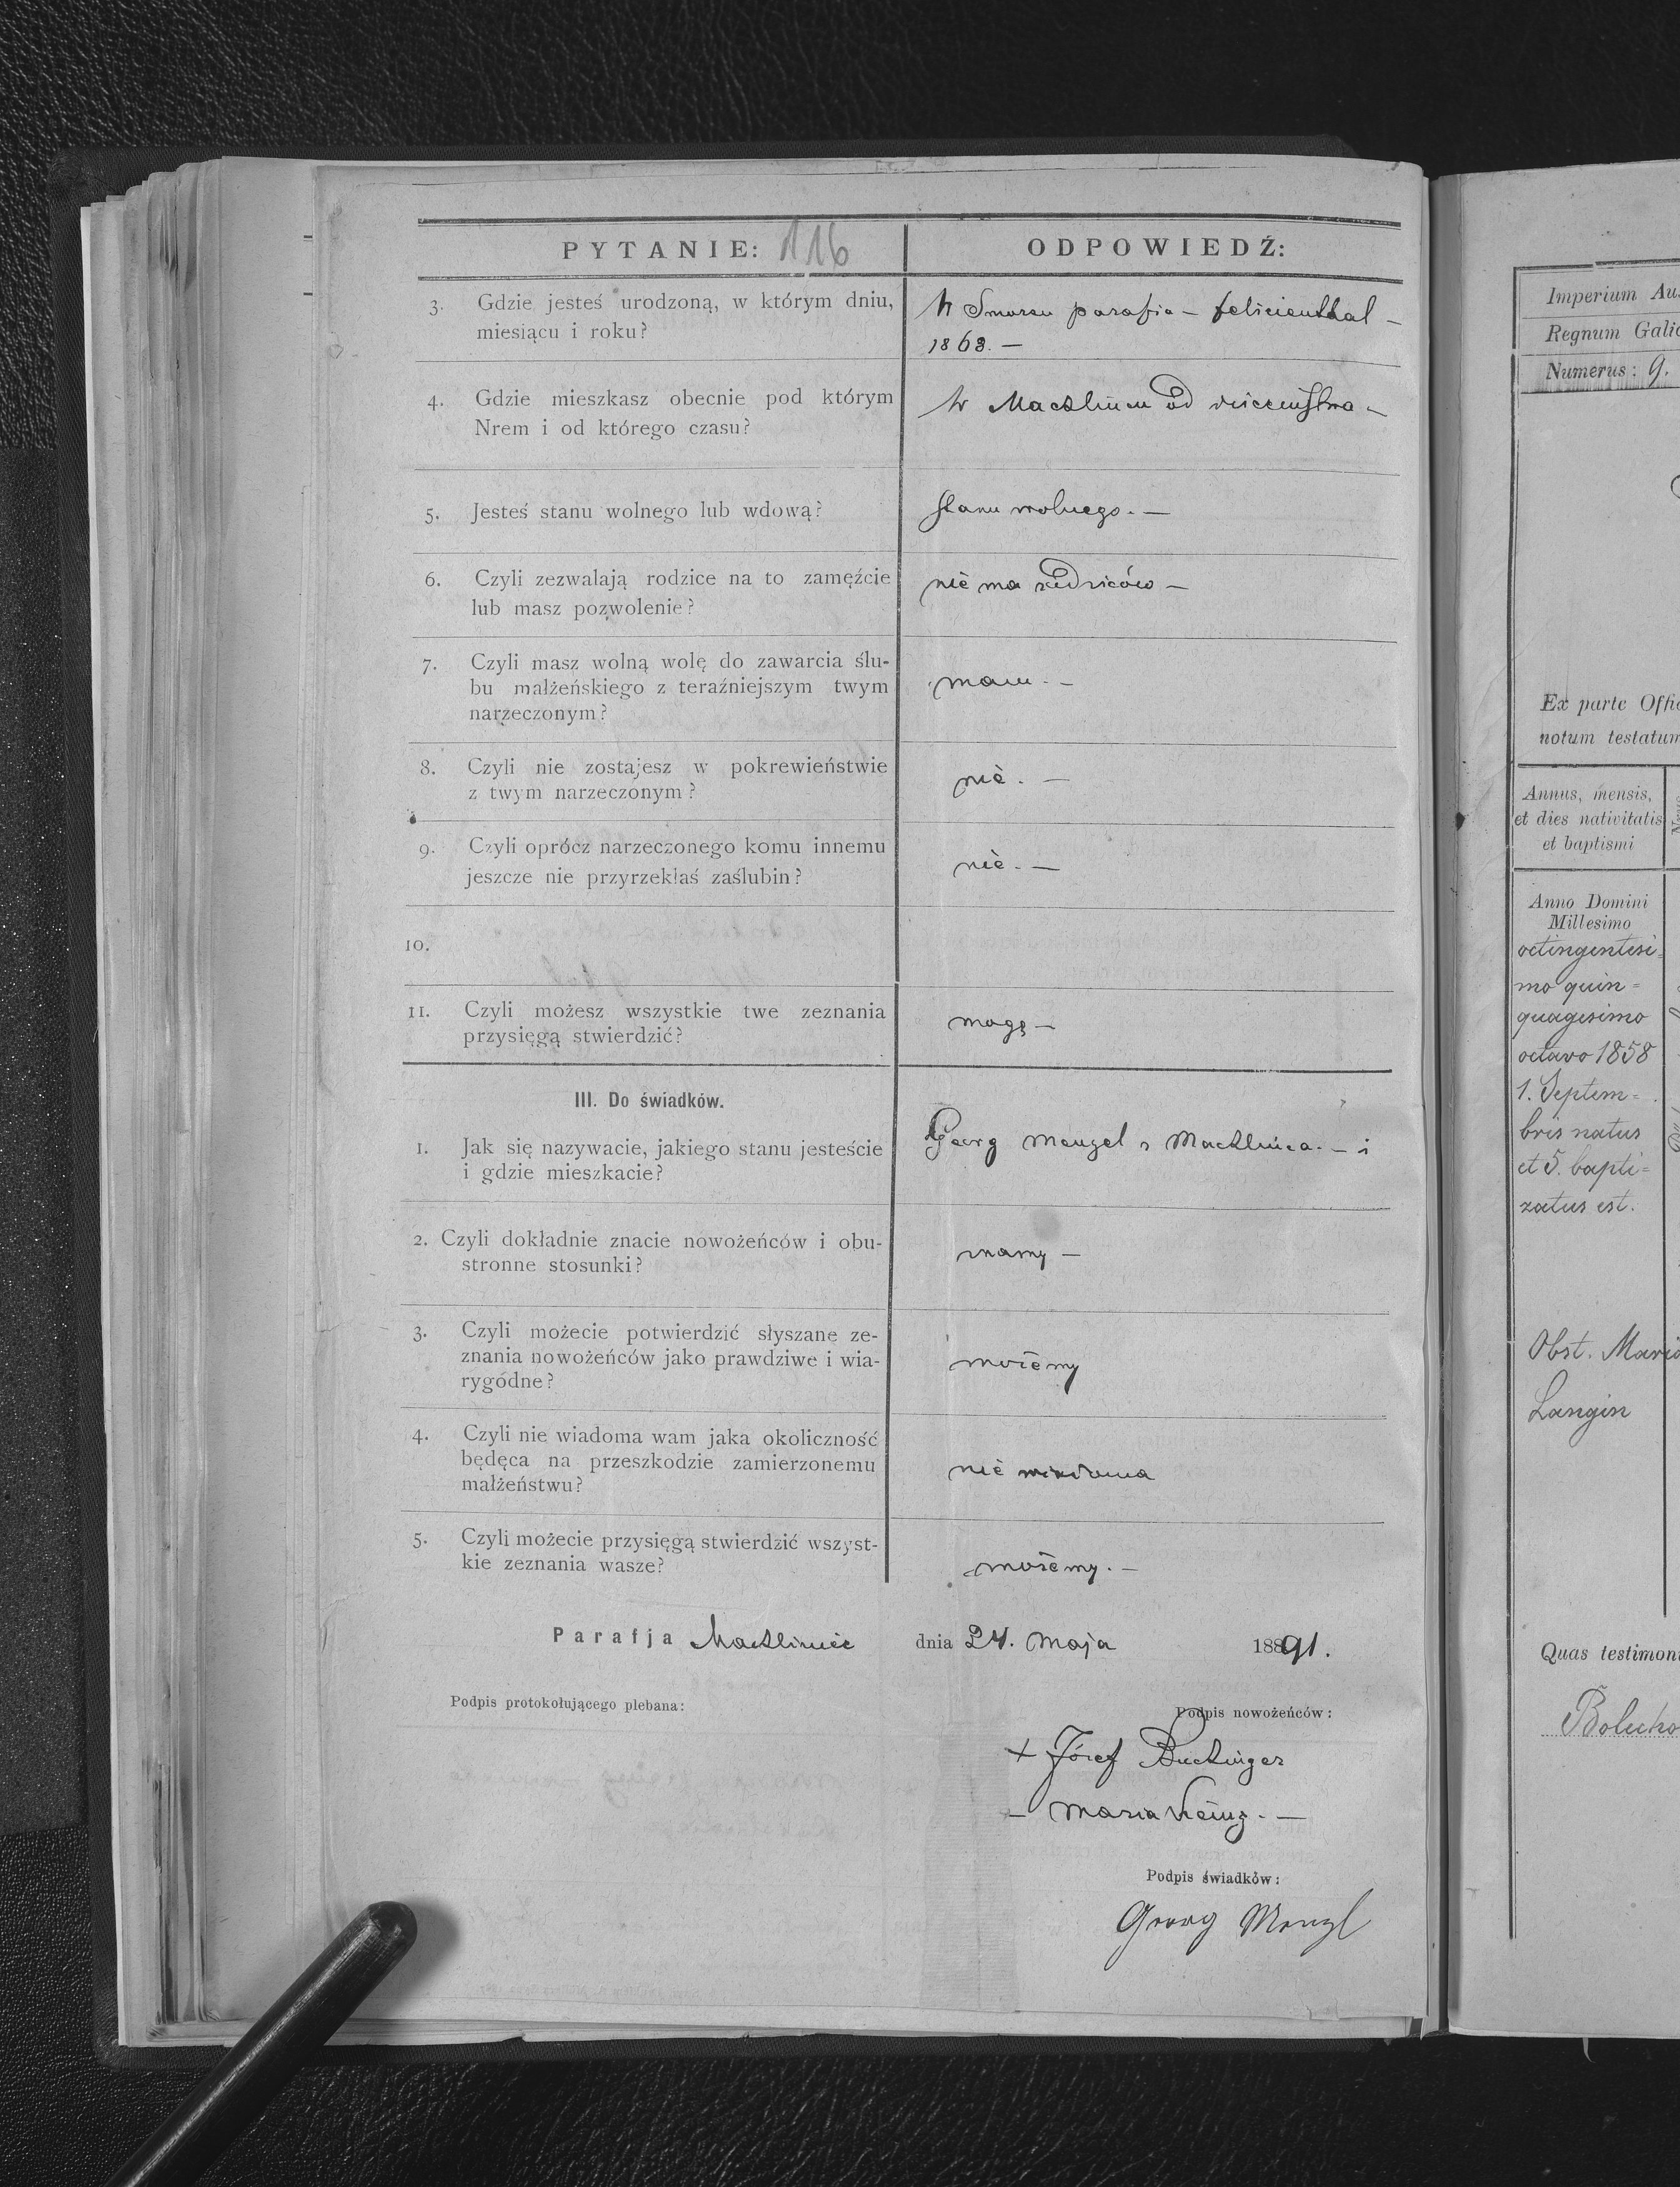 PYTANIE: 116
ODPOWIEDŹ:
3. Gdzie jesteś urodzoną, w którym dniu,
miesiącu i roku?
W Smorzu parafia - felicienthal -
1868. —
4. Gdzie mieszkasz obecnie pod którym
Nrem i od którego czasu?
W Macklińcu od dzieciństwa -
5. Jesteś stanu wolnego lub wdową?
stanu wolnego. —
6. Czyli zezwalają rodzice na to zamęźcie
lub masz pozwolenie?
nie ma rodziców —
7. Czyli masz wolną wolę do zawarcia ślu-
bu małżeńskiego z teraźniejszym twym
narzeczonym?
mam. —
8. Czyli nie zostajesz w pokrewieństwie
z twym narzeczonym?
nie. —
9. Czyli oprócz narzeczonego komu innemu
jeszcze nie przyrzekłaś zaślubin?
nie. —
10.
11. Czyli możesz wszystkie twe zeznania
przysięgą stwierdzić?
mogę —
III. Do świadków.
1. Jak się nazywacie, jakiego stanu jesteście
i gdzie mieszkacie?
Georg Menzel z Macklińca. — i
2. Czyli dokładnie znacie nowożeńców i obu-
stronne stosunki?
znamy —
3. Czyli możecie potwierdzić słyszane ze-
znania nowożeńców jako prawdziwe i wia-
rygódne?
możemy
4. Czyli nie wiadoma wam jaka okoliczność
będęca na przeszkodzie zamierzonemu
małżeństwu?
nie wiadoma
5. Czyli możecie przysięgą stwierdzić wszyst-
kie zeznania wasze?
możemy. —
Parafja Mackliniec dnia 24. maja 18891.
Podpis protokołującego plebana:
Podpis nowożeńców:
+ Józef Buckinger
— Maria —
Podpis świadków:
Georg Menzl
Imperium Au
Regnum Galic
Numerus: 9.
Ex parte Offic
notum testatum
Annus, mensis,
et dies nativitatis
et baptismi
Anno Domini
Millesimo
octingentesi=
mo quin=
quagesimo
octavo 1858
1. Septem=
bris natus
et 5. bapti=
zatus est.
Obst. Maria
Langin
Quas testimoni
Bolecho